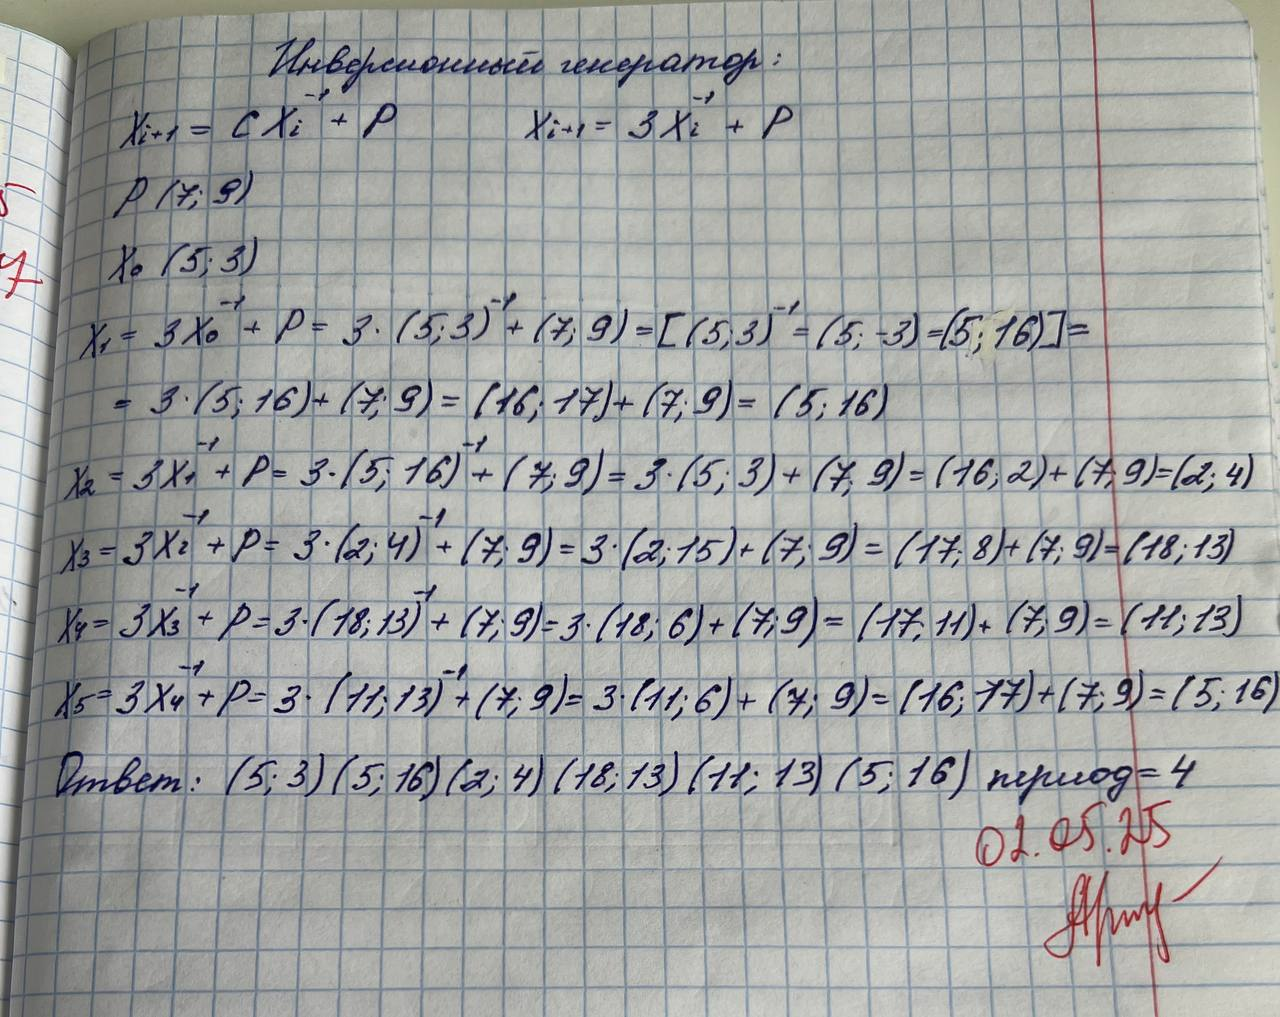 5
7
Инверсионный генератор:
Xi+1 = C Xi⁻¹ + P    Xi+1 = 3Xi⁻¹ + P
P (7; 9)
X₀ (5; 3)
X₁ = 3X₀⁻¹ + P = 3·(5;3)⁻¹ + (7; 9) = [(5;3)⁻¹ = (5; -3) = (5; 16)] =
= 3·(5; 16) + (7; 9) = (16; 17) + (7; 9) = (5; 16)
X₂ = 3X₁⁻¹ + P = 3·(5; 16)⁻¹ + (7; 9) = 3·(5; 3) + (7; 9) = (16; 2) + (7; 9) = (2; 4)
X₃ = 3X₂⁻¹ + P = 3·(2; 4)⁻¹ + (7; 9) = 3·(2; 15) + (7; 9) = (17; 8) + (7; 9) = (18; 13)
X₄ = 3X₃⁻¹ + P = 3·(18; 13)⁻¹ + (7; 9) = 3·(18; 6) + (7; 9) = (17; 11) + (7; 9) = (11; 13)
X₅ = 3X₄⁻¹ + P = 3·(11; 13)⁻¹ + (7; 9) = 3·(11; 6) + (7; 9) = (16; 17) + (7; 9) = (5; 16)
Ответ: (5; 3) (5; 16) (2; 4) (18; 13) (11; 13) (5; 16) период = 4
02.05.25